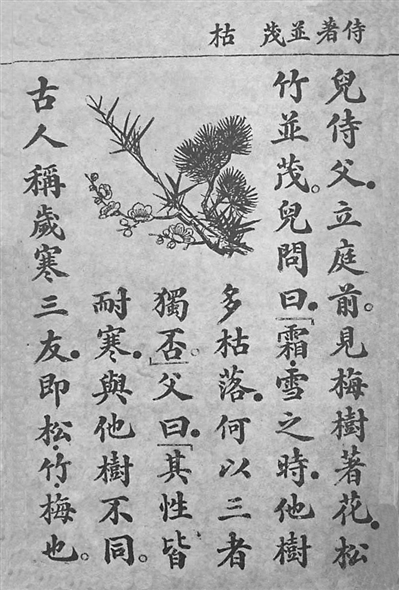 侍著並茂 枯
兒侍父・立庭前。見梅樹著花・松
竹並茂。兒問曰・「霜・雪之時・他樹
多枯落・何以三者
獨否」。父曰・「其性皆
耐寒・與他樹不同。
古人稱歲寒三友・即松・竹・梅也。